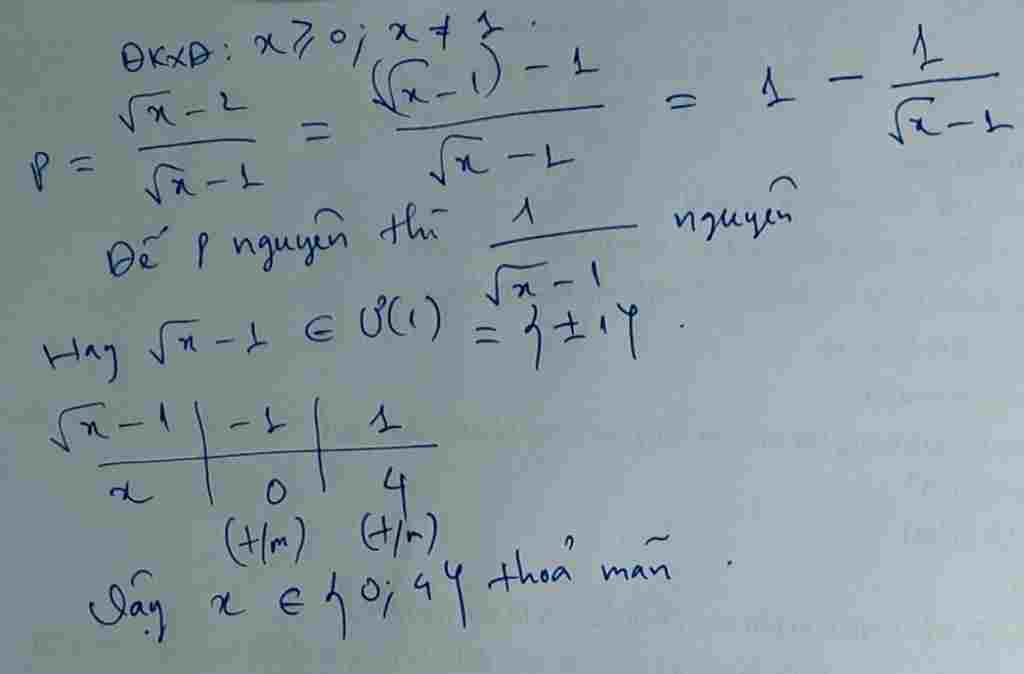 ĐKXĐ: x ≥ 0; x ≠ 1.
P = (√x - 2)/(√x - 1) = ((√x - 1) - 1)/(√x - 1) = 1 - 1/(√x - 1)
Để P nguyên thì 1/(√x - 1) nguyên
Hay √x - 1 ∈ Ư(1) = {±1}.
√x - 1 | -1 | 1
x | 0 | 4
(t/m) (t/m)
Vậy x ∈ {0; 4} thoả mãn.